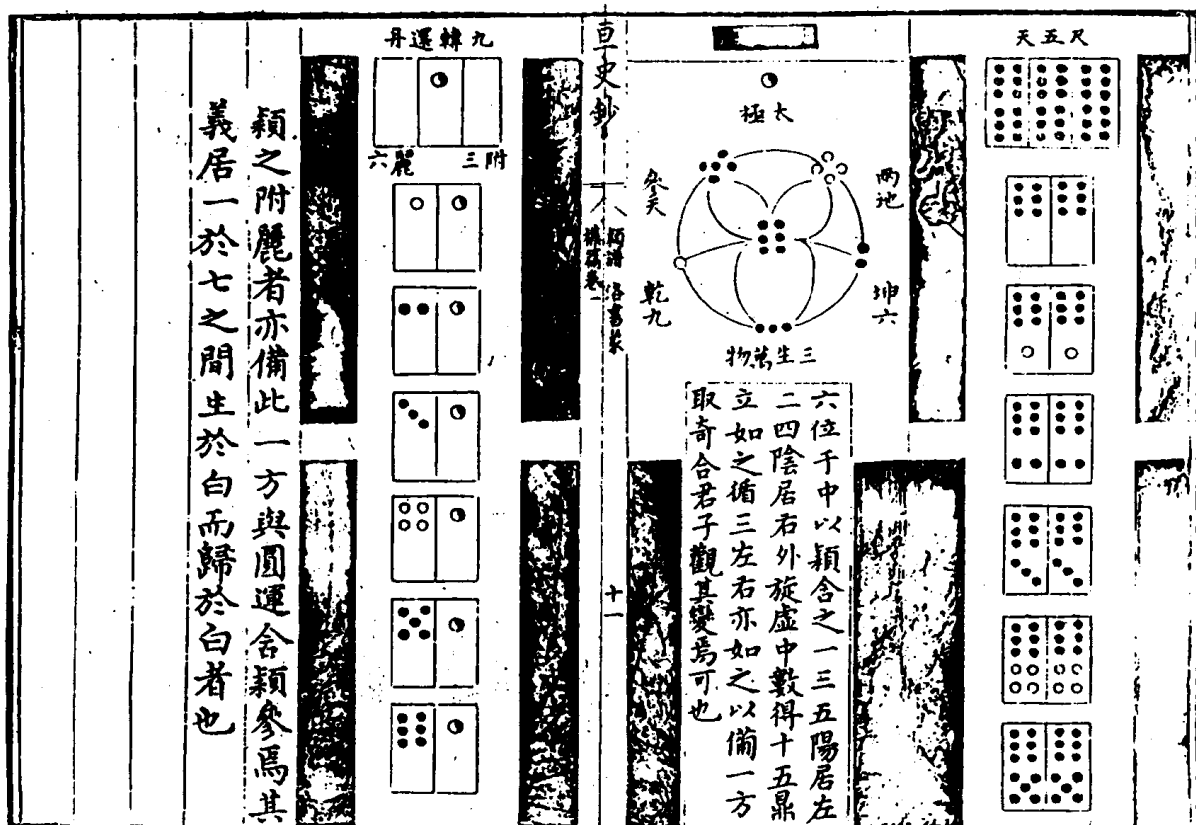 尺五天
太極
兩地
參天
坤六
乾九
三生萬物
六位于中以穎含之一三五陽居左
二四陰居右外旋虛中數得十五鼎
立如之循三左右亦如之以備一方
取奇合君子觀其變焉可也
史鈔
十一
九轉還丹
附三
麗六
穎之附麗者亦備此一方與圓運舍穎參焉其
義居一於七之間生於白而歸於白者也